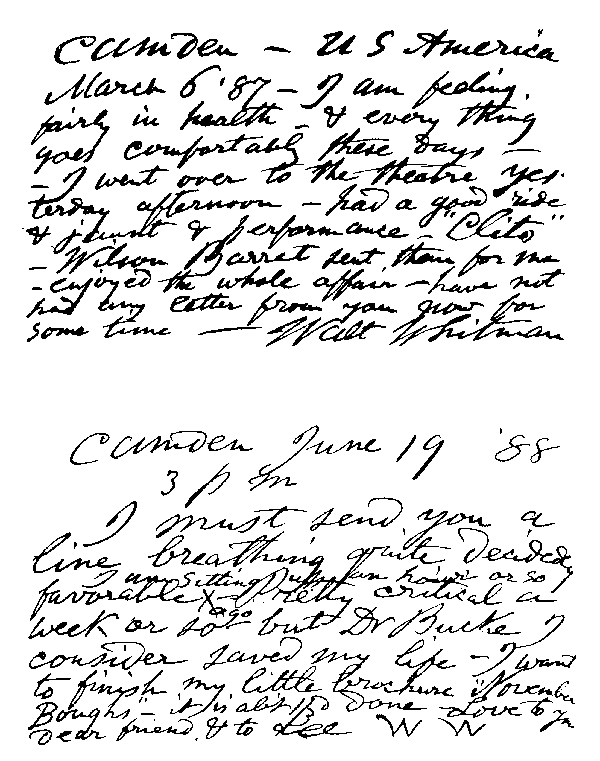 Camden – U S America
March 6 '87 – I am feeling
fairly in health – & every thing
goes comfortably these days –
– I went over to the theatre yes-
terday afternoon – had a good ride
& jaunt & performance – "Clito"
– Wilson Barret sent them for me
– enjoyed the whole affair – have not
had any letter from you now for
some time — Walt Whitman
Camden June 19 '88
3 p m
I must send you a
line breathing quite decidedly
I am sitting up an hour or so
favorable – Pretty critical a
week or so ago but Dr Bucke I
consider saved my life – I want
to finish my little brochure "November
Boughs" – it is abt done – Love to you
dear friend & to Lee W W